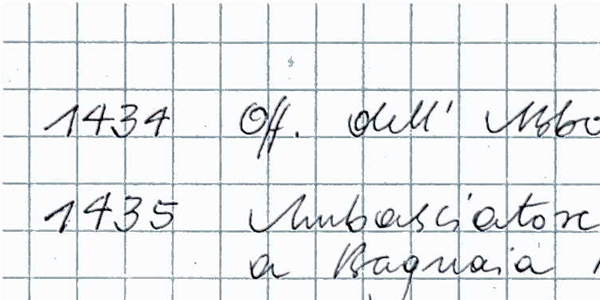 1434 Off. dell' Abbo
1435 Ambasciatore
a Bagnaia